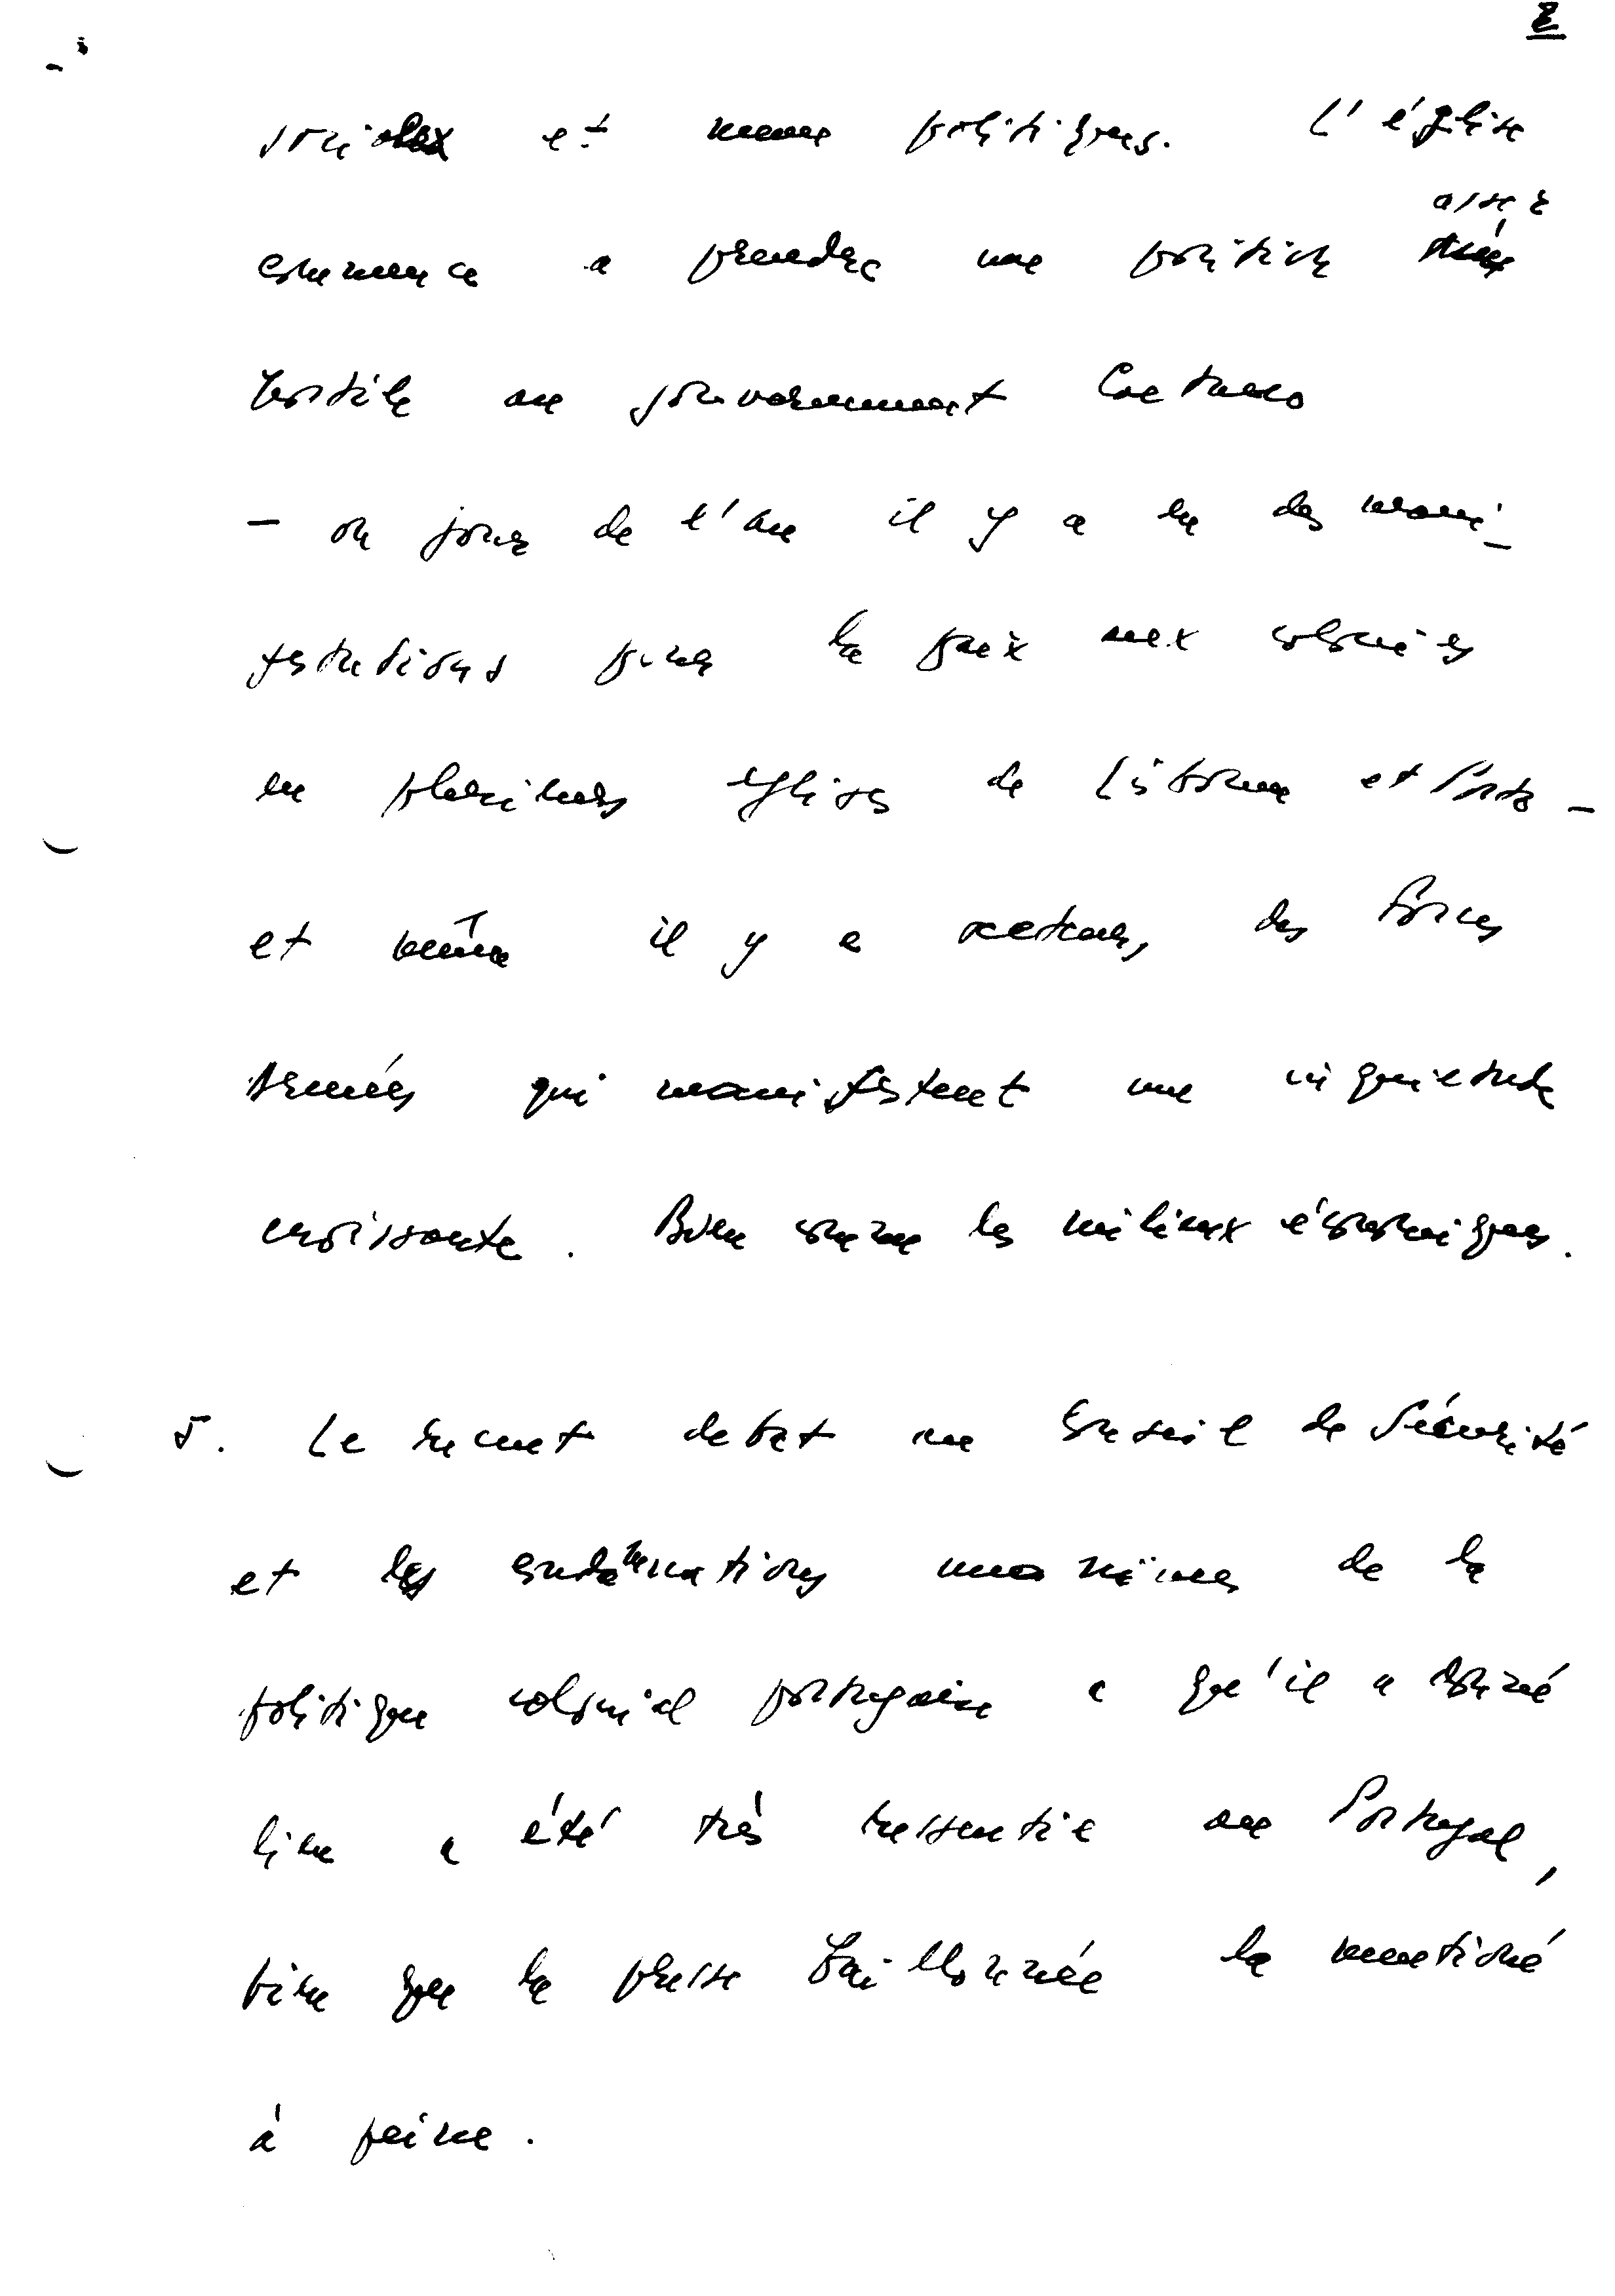 2
sociales et meme politiques. L'église
assez
commence a prendre une politich
hostile au gouvernement Caetano
- ou jour de l'an il y a eu des mani-
festations pour la paix aux colonies
en plusieurs eglises de Lisbonne et Porto -
et même il y a secteurs, des Forces
Armées qui manifestent une inquietude
croissante. Bien comme les milieux économiques.
5. Le recent debat au Conseil de Sécurité
et les condamnations unanimes de la
politique colonial portugaise a qu'il a donné
lieu a été très ressentie au Portugal,
bien que la presse baillonnée la mentioné
à peine.